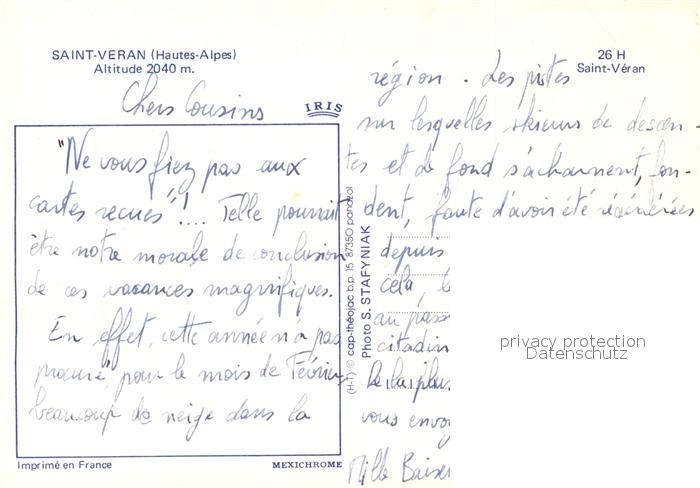 SAINT-VERAN (Hautes-Alpes)
Altitude 2040 m.
26 H
Saint-Véran
Chers Cousins
IRIS
"Ne vous fiez pas aux
cartes recues"!.... Telle pourrait
être notre morale de conclusion
de ces vacances magnifiques.
En effet, cette année n'a pas
procuré, pour le mois de Février,
beaucoup de neige dans la
région. Les pistes
sur lesquelles skieurs de descen-
tes et de fond s'acharnent, fon-
dent, faute d'avoir été régénérées
depuis
cela,
au pass
citadin
De la plus
vous envoy
Mille Baiser
(H-1) © cap-théojac b.p. 15 87350 panazol
Photo S. STAFYNIAK
privacy protection
Datenschutz
Imprimé en France
MEXICHROME